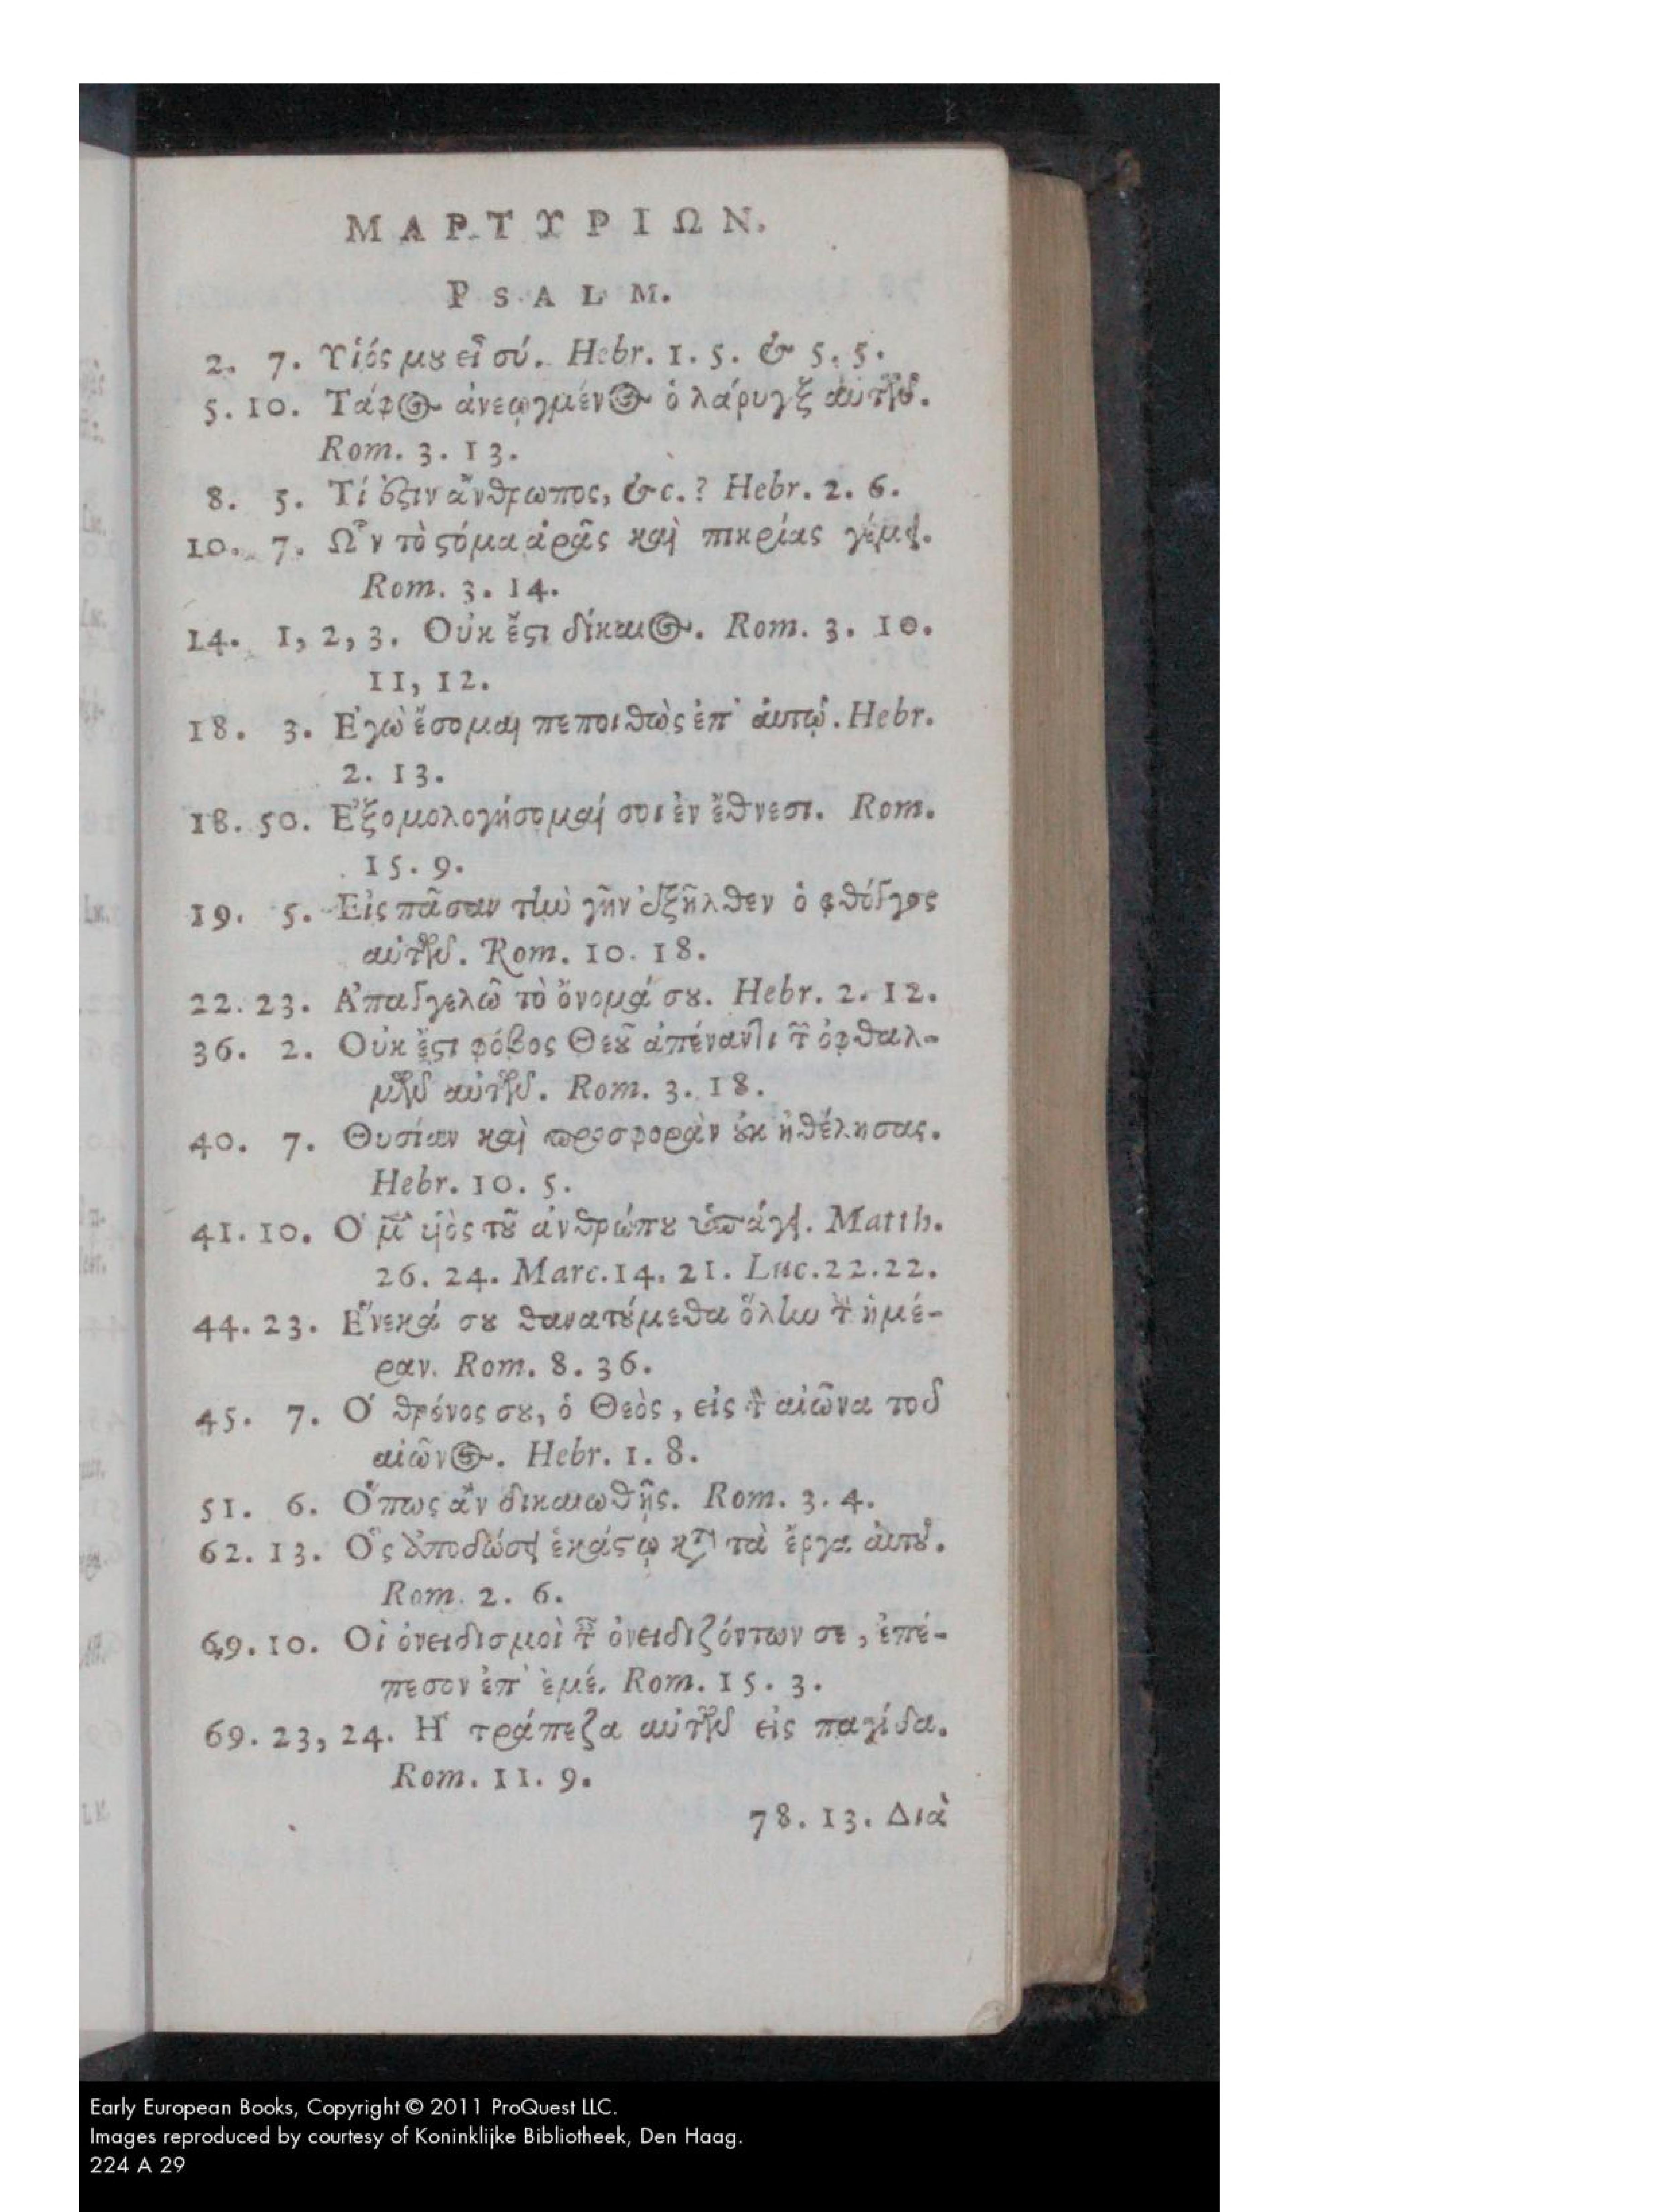 ΜΑΡΤΥΡΙΩΝ.
PSALM.
2. 7. Υἱός μȣ εἶ σύ. Hebr. 1. 5. & 5. 5.
5. 10. Τάφος ἀνεῳγμένος ὁ λάρυγξ αὐτῶν.
Rom. 3. 13.
8. 5. Τί ἐςιν ἄνθρωπος, &c.? Hebr. 2. 6.
10. 7. Ὧν τὸ ςόμα ἀρᾶς καὶ πικρίας γέμει.
Rom. 3. 14.
14. 1, 2, 3. Οὐκ ἔςι δίκαιος. Rom. 3. 10.
11, 12.
18. 3. Ἐγὼ ἔσομαι πεποιθὼς ἐπ' ἀυτῷ. Hebr.
2. 13.
18. 50. Ἐξομολογήσομαί σοι ἐν ἔθνεσι. Rom.
15. 9.
19. 5. Εἰς πᾶσαν τὴν γῆν ἐξῆλθεν ὁ φθόγγος
αὐτῶν. Rom. 10. 18.
22. 23. Ἀπαγγελῶ τὸ ὄνομά σȣ. Hebr. 2. 12.
36. 2. Οὐκ ἔςι φόβος Θεȣ͂ ἀπέναντι τῶν ὀφθαλ-
μῶν αὐτῶν. Rom. 3. 18.
40. 7. Θυσίαν καὶ προσφορὰν ȣ̓κ ἠθέλησας.
Hebr. 10. 5.
41. 10. Ὁ μὲν υἱὸς τȣ͂ ἀνθρώπȣ ὑπάγει. Matth.
26. 24. Marc. 14. 21. Luc. 22. 22.
44. 23. Ἕνεκά σȣ θανατȣ́μεθα ὅλην τὴν ἡμέ-
ραν. Rom. 8. 36.
45. 7. Ὁ θρόνος σȣ, ὁ Θεὸς, εἰς τὸν αἰῶνα τοῦ
αἰῶνος. Hebr. 1. 8.
51. 6. Ὅπως ἂν δικαιωθῇς. Rom. 3. 4.
62. 13. Ὃς ἀποδώσει ἑκάςῳ κατὰ τὰ ἔργα ἀυτȣ͂.
Rom. 2. 6.
69. 10. Οἱ ὀνειδισμοὶ τῶν ὀνειδιζόντων σε, ἐπέ-
πεσον ἐπ' ἐμέ. Rom. 15. 3.
69. 23, 24. Ἡ τράπεζα αὐτῶν εἰς παγίδα.
Rom. 11. 9.
78. 13. Διὰ
Early European Books, Copyright © 2011 ProQuest LLC.
Images reproduced by courtesy of Koninklijke Bibliotheek, Den Haag.
224 A 29